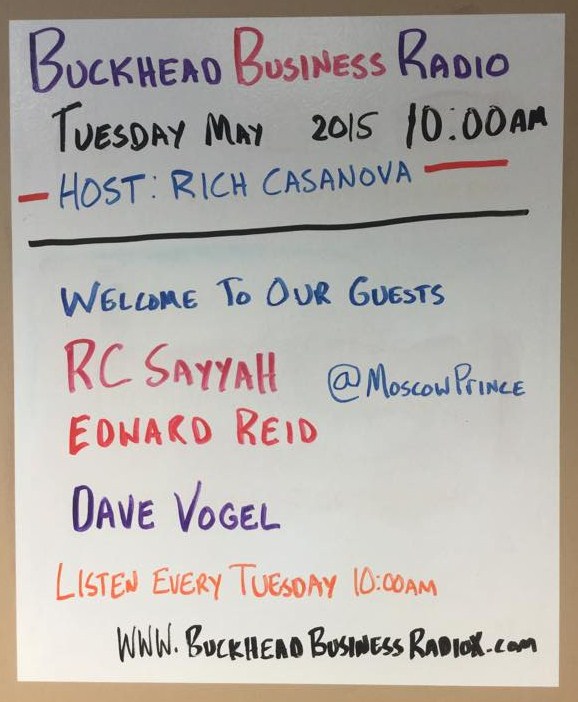 BUCKHEAD BUSINESS RADIO
TUESDAY MAY 2015 10:00AM
- HOST: RICH CASANOVA -
WELCOME TO OUR GUESTS
RC SAYYAH @MOSCOWPRINCE
EDWARD REID
DAVE VOGEL
LISTEN EVERY TUESDAY 10:00AM
WWW.BUCKHEADBUSINESSRADIOX.com